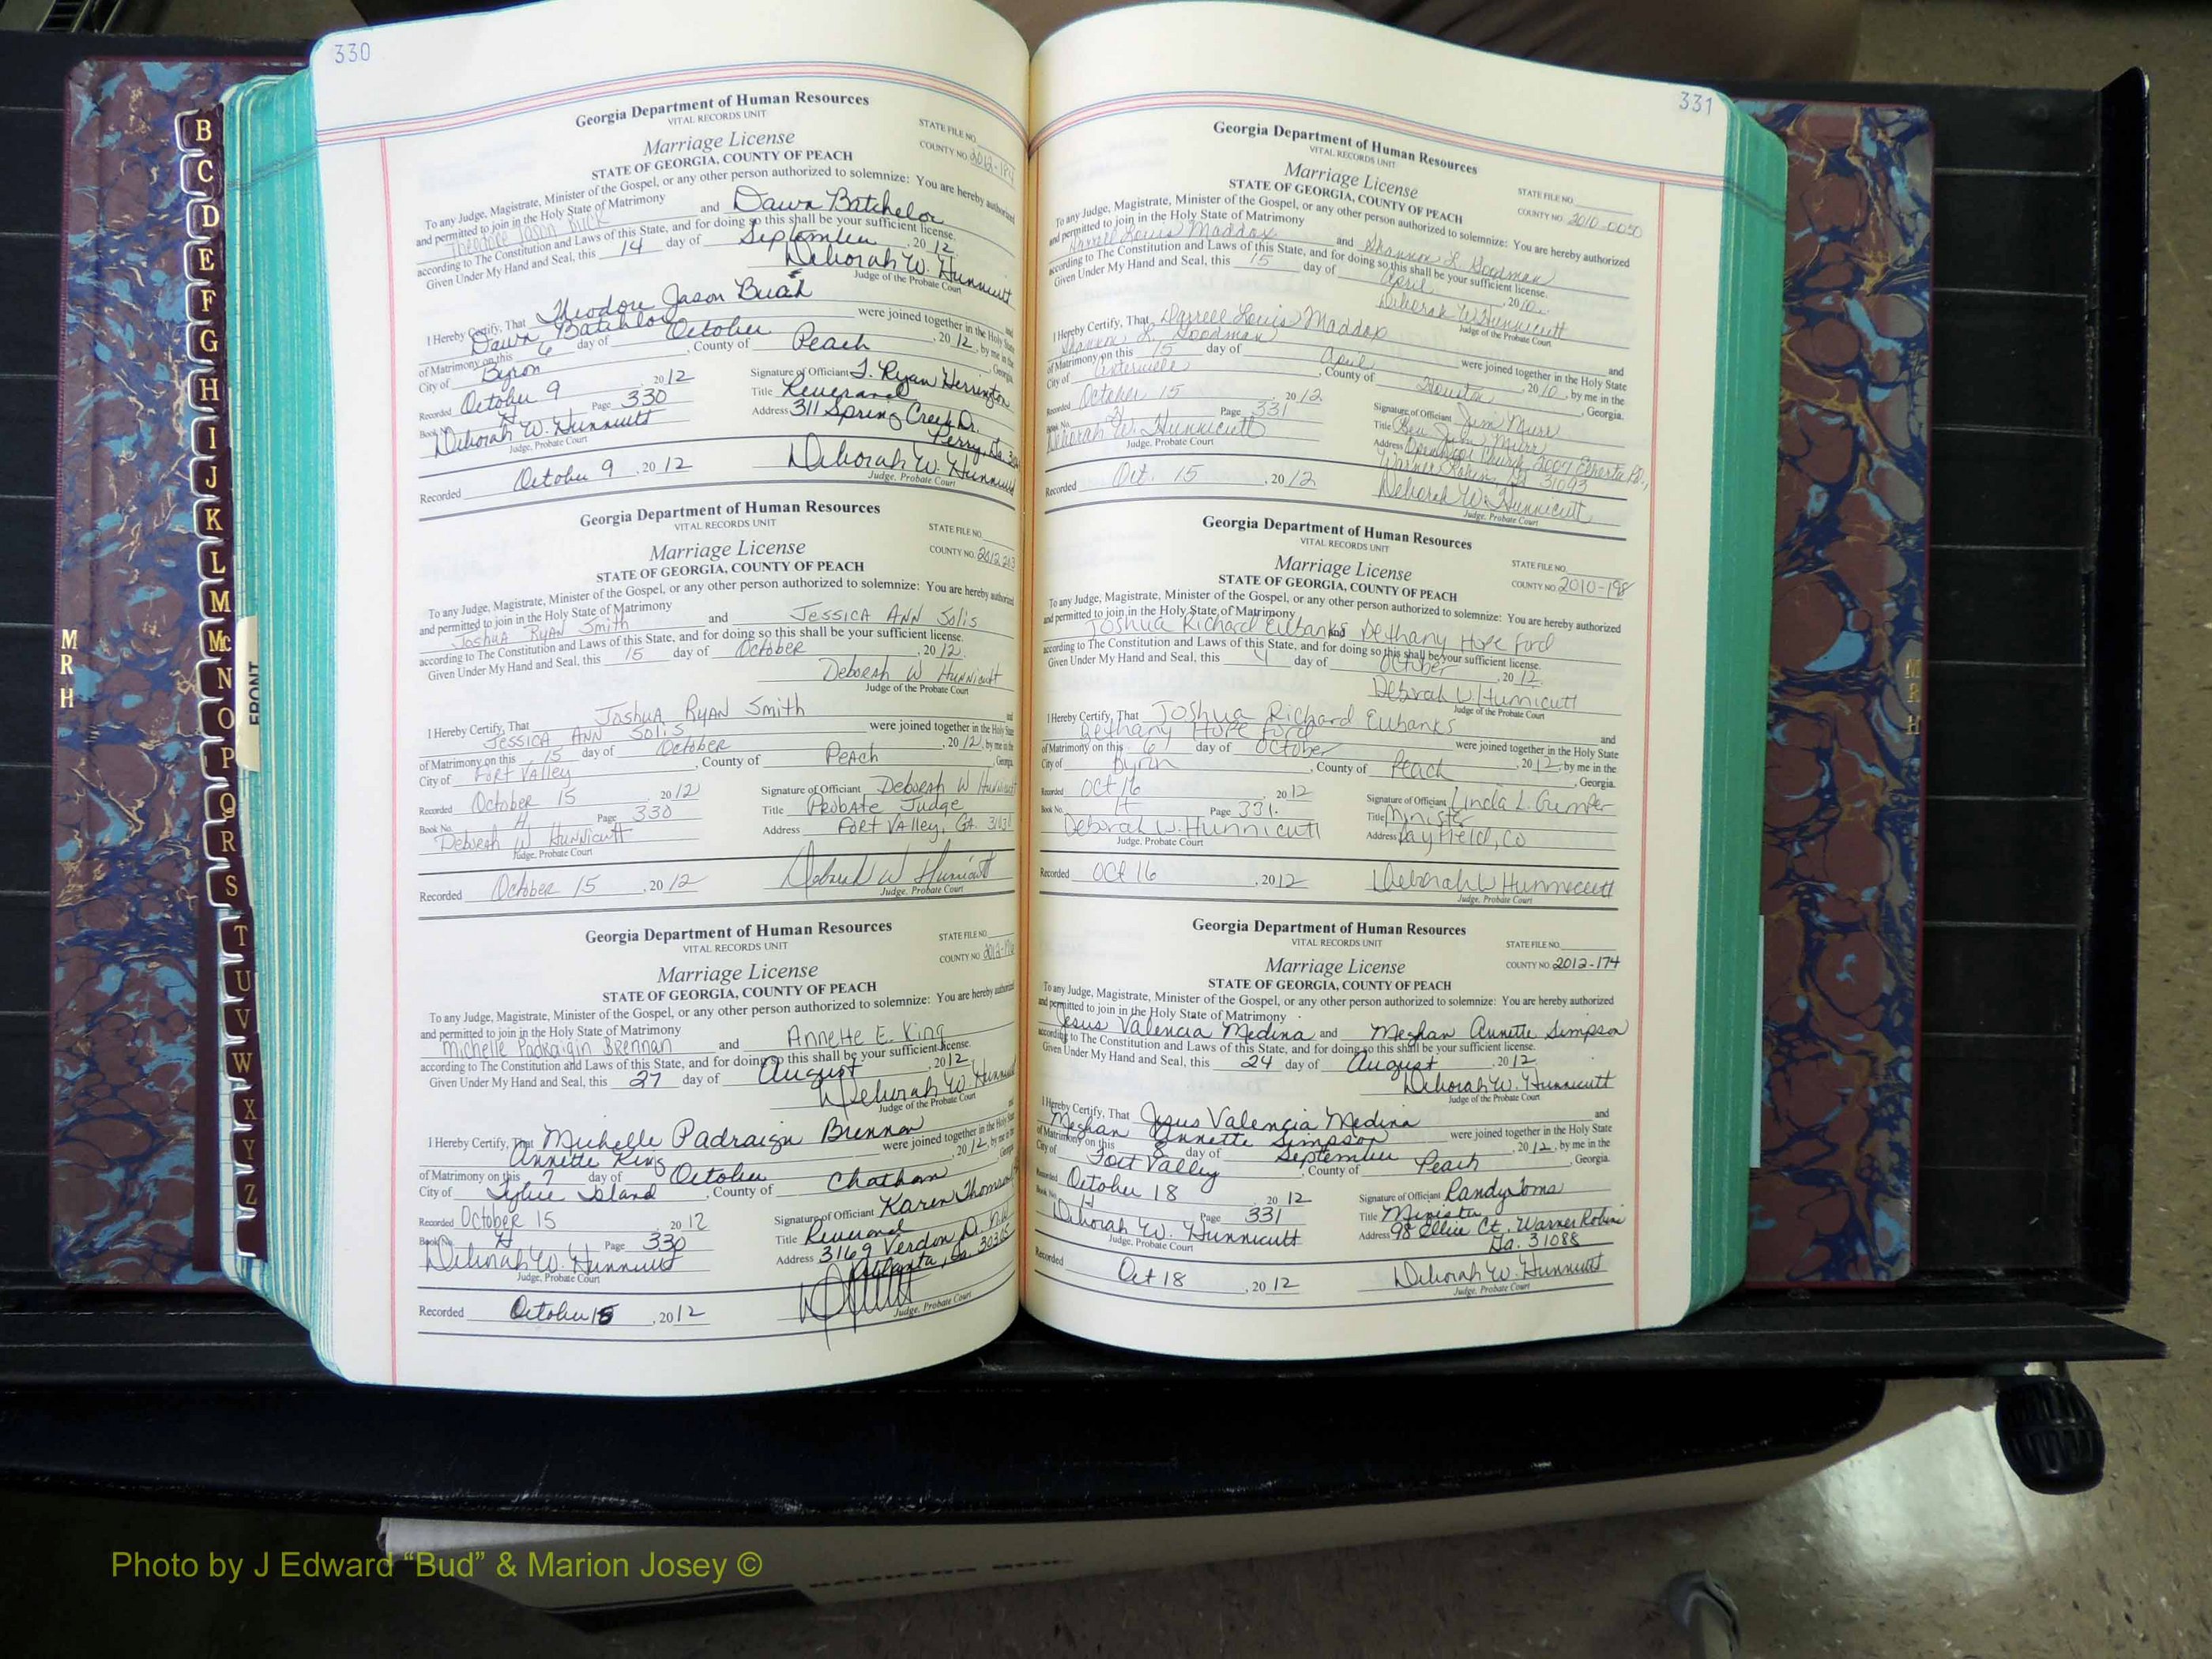 330
Georgia Department of Human Resources
VITAL RECORDS UNIT
STATE FILE NO.
Marriage License
COUNTY NO.
STATE OF GEORGIA, COUNTY OF PEACH
To any Judge, Magistrate, Minister of the Gospel, or any other person authorized to solemnize: You are hereby authorized
and permitted to join in the Holy State of Matrimony
Theodore Jason and Dawn Batchelor
according to The Constitution and Laws of this State, and for doing so this shall be your sufficient license.
Given Under My Hand and Seal, this 14 day of September, 2012
Deborah W. Hunnicutt
Judge of the Probate Court
I Hereby Certify, That Theodore Jason and
Dawn Batchlor were joined together in the Holy State
of Matrimony on this 6 day of October, 2012, by me in the
City of Byron, County of Peach, Georgia.
Recorded October 9 2012
Signature of Officiant J. Ryan Herrington
Book No. H Page 330
Title Reverand
Deborah W. Hunnicutt
Address 311 Spring Creek Dr.
Judge, Probate Court
Perry, Ga.
Recorded October 9, 2012 Deborah W. Hunnicutt
Judge, Probate Court
Georgia Department of Human Resources
VITAL RECORDS UNIT
STATE FILE NO.
Marriage License
COUNTY NO. 2012-213
STATE OF GEORGIA, COUNTY OF PEACH
To any Judge, Magistrate, Minister of the Gospel, or any other person authorized to solemnize: You are hereby authorized
and permitted to join in the Holy State of Matrimony
Joshua Ryan Smith and Jessica Ann Solis
according to The Constitution and Laws of this State, and for doing so this shall be your sufficient license.
Given Under My Hand and Seal, this 15 day of October, 2012
Deborah W Hunnicutt
Judge of the Probate Court
I Hereby Certify, That Joshua Ryan Smith and
Jessica Ann Solis were joined together in the Holy State
of Matrimony on this 15 day of October, 2012, by me in the
City of Fort Valley, County of Peach, Georgia
Recorded October 15 2012
Signature of Officiant Deborah W Hunnicutt
Book No. H Page 330
Title Probate Judge
Deborah W Hunnicutt
Address Fort Valley, GA. 31030
Judge, Probate Court
Recorded October 15, 2012 Deborah W Hunnicutt
Judge, Probate Court
Georgia Department of Human Resources
VITAL RECORDS UNIT
STATE FILE NO.
Marriage License
COUNTY NO.
STATE OF GEORGIA, COUNTY OF PEACH
To any Judge, Magistrate, Minister of the Gospel, or any other person authorized to solemnize: You are hereby authorized
and permitted to join in the Holy State of Matrimony
Michelle Padraigin Brennan and Annette E. King
according to The Constitution and Laws of this State, and for doing so this shall be your sufficient license.
Given Under My Hand and Seal, this 27 day of August, 2012
Deborah W. Hunnicutt
Judge of the Probate Court
I Hereby Certify, That Michelle Padraign Brennan and
Annette King were joined together in the Holy State
of Matrimony on this 7 day of October, 2012, by me in the
City of Tybee Island, County of Chatham Georgia
Recorded October 15 2012
Signature of Officiant Karen Thomson
Book No. H Page 330
Title Reverend
Deborah W. Hunnicutt
Address 3169 Verdon Dr. NW
Judge, Probate Court
Atlanta, Ga. 30305
Recorded October 15, 2012
Judge, Probate Court
331
Georgia Department of Human Resources
VITAL RECORDS UNIT
STATE FILE NO.
Marriage License
COUNTY NO. 2010-0050
STATE OF GEORGIA, COUNTY OF PEACH
To any Judge, Magistrate, Minister of the Gospel, or any other person authorized to solemnize: You are hereby authorized
and permitted to join in the Holy State of Matrimony
Darrell Louis Maddox and Shannon L. Goodman
according to The Constitution and Laws of this State, and for doing so this shall be your sufficient license.
Given Under My Hand and Seal, this 15 day of April, 2010.
Deborah W Hunnicutt
Judge of the Probate Court
I Hereby Certify, That Darrell Louis Maddox and
Shannon L. Goodman were joined together in the Holy State
of Matrimony on this 15 day of April, 2010, by me in the
City of Centerville, County of Houston, Georgia.
Recorded October 15 2012
Signature of Officiant Jim Murr
Book No. H Page 331
Title Rev. Jim Murr
Deborah W. Hunnicutt
Address Church, 2007 Rd.,
Judge, Probate Court
Warner Robins, Ga 31093
Recorded Oct. 15, 2012 Deborah W. Hunnicutt
Judge, Probate Court
Georgia Department of Human Resources
VITAL RECORDS UNIT
STATE FILE NO.
Marriage License
COUNTY NO. 2010-198
STATE OF GEORGIA, COUNTY OF PEACH
To any Judge, Magistrate, Minister of the Gospel, or any other person authorized to solemnize: You are hereby authorized
and permitted to join in the Holy State of Matrimony
Joshua Richard Eubanks and Bethany Hope Ford
according to The Constitution and Laws of this State, and for doing so this shall be your sufficient license.
Given Under My Hand and Seal, this 4 day of October, 2012.
Deborah W. Hunnicutt
Judge of the Probate Court
I Hereby Certify, That Joshua Richard Eubanks and
Bethany Hope Ford were joined together in the Holy State
of Matrimony on this 6 day of October, 2012, by me in the
City of Byron, County of Peach, Georgia.
Recorded Oct 16 2012
Signature of Officiant Linda L. Gunter
Book No. H Page 331.
Title Minister
Deborah W. Hunnicutt
Address Bayfield, CO
Judge, Probate Court
Recorded Oct 16, 2012 Deborah W Hunnicutt
Judge, Probate Court
Georgia Department of Human Resources
VITAL RECORDS UNIT
STATE FILE NO.
Marriage License
COUNTY NO. 2012-174
STATE OF GEORGIA, COUNTY OF PEACH
To any Judge, Magistrate, Minister of the Gospel, or any other person authorized to solemnize: You are hereby authorized
and permitted to join in the Holy State of Matrimony
Jesus Valencia Medina and Meghan Annette Simpson
according to The Constitution and Laws of this State, and for doing so this shall be your sufficient license.
Given Under My Hand and Seal, this 24 day of August, 2012
Deborah W. Hunnicutt
Judge of the Probate Court
I Hereby Certify, That Jesus Valencia Medina and
Meghan Annette Simpson were joined together in the Holy State
of Matrimony on this 8 day of September, 2012, by me in the
City of Fort Valley, County of Peach, Georgia.
Recorded October 18 2012
Signature of Officiant Randy Toms
Book No. H Page 331
Title Minister
Deborah W. Hunnicutt
Address 98 Ellie Ct, Warner Robins
Judge, Probate Court
Ga. 31088
Recorded Oct 18, 2012 Deborah W. Hunnicutt
Judge, Probate Court
B
C
D
E
F
G
H
I
J
K
L
M
Mc
N
O
P
Q
R
S
T
U
V
W
X
Y
Z
FRONT
M
R
H
M
R
H
Photo by J Edward “Bud” & Marion Josey ©